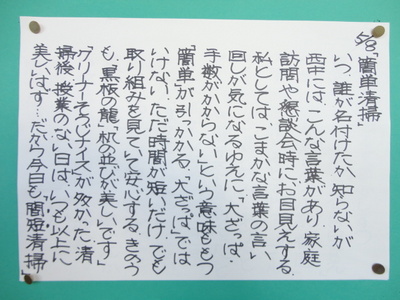 5/8「簡単清掃」
いつ、誰が名付けたか、知らないが
西中には、こんな言葉があり、家庭
訪問や懇談会時にお目見えする。
私としては、こまかな言葉の言い
回しが気になるゆえに、大ざっぱ、
手数がかからない」という意味ももつ
「簡単」が引っかかる。「大ざっぱ」では
いけない。ただ時間が短いだけ。でも
取り組みを見ていて安心する。きのう
も、黒板の龍「机の並びが美しいです」
グリーン「そうじナイス」が多かった。清
掃後、授業のない日は、いつも以上に
美しいはず…だから今日も「簡短清掃」